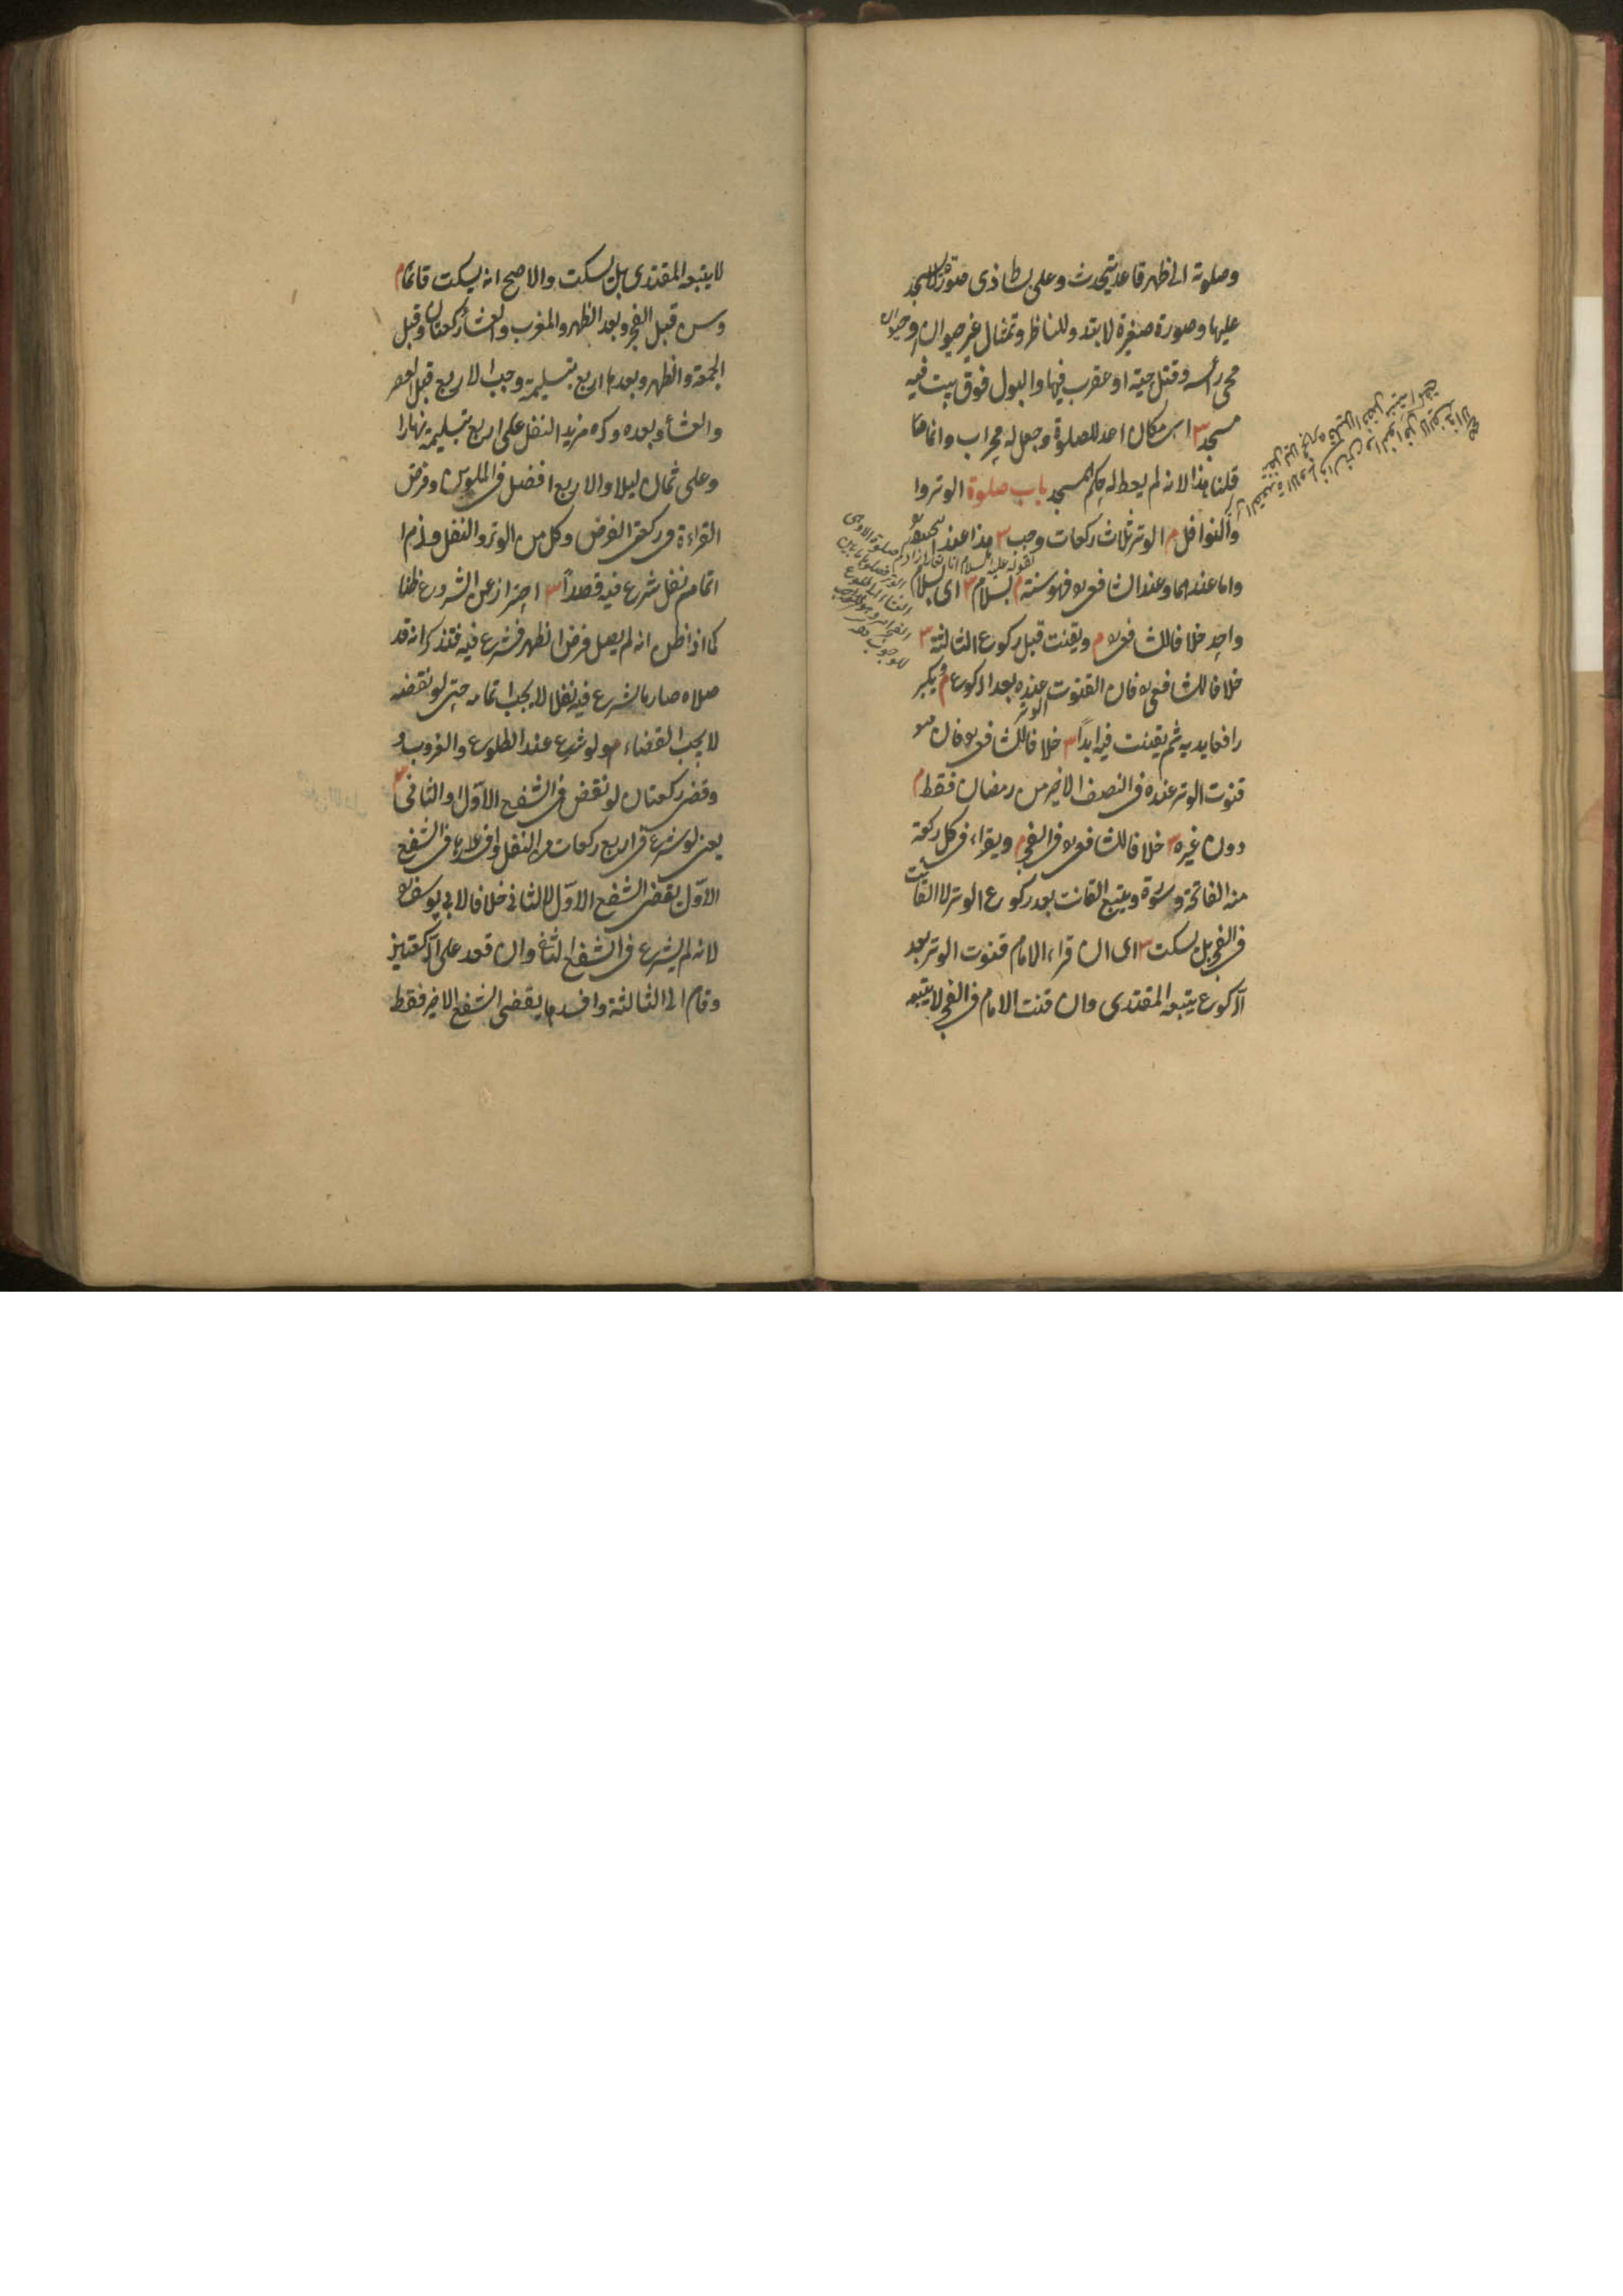 وصلوته الى ظهر قاعد يتحدث وعلى بساط ذى صورة لا يسجد
عليها وصورة صغيرة لا تبدو للناظر وتمثال غير حيوان او حيوان
محى رأسه وقتل حية او عقرب فيها والبول فوق بيت فيه
مسجد ٣ اى مكان اعد للصلوة وجعل له محراب وانما
قلنا هذا لانه لم يعط له حكم المسجد باب صلوة الوتر وا
والنوافل م الوتر ثلاث ركعات وجب ٣ هذا عند ابى حنيفة
واما عندهما وعند الشافعى فهو سنة م بسلام ٣ اى بسلام
واحد خلافا للشافعى م ويقنت قبل ركوع الثالثة ٣
خلافا للشافعى فان القنوت عنده بعد الركوع م ويكبر
رافعا يديه ثم يقنت فيه ابداً ٣ خلافا للشافعى فان
قنوت الوتر عنده فى النصف الاخير من رمضان فقط م
دون غيره ٣ خلافا للشافعى فى الفجر م ويقراء فى كل ركعة
منه الفاتحة وسورة ويتبع القانت بعد ركوع الوتر لا القانت
فى الفجر بل يسكت ٣ اى ان قراء الامام قنوت الوتر بعد
الركوع يتبعه المقتدى وان قنت الامام فى الفجر لا يتبعه
لقوله عليه السلام ان الله تعالى زادكم صلوة الا وهى
الوتر فصلوها ما بين
العشاء الى طلوع
الفجر امر وهو للوجوب
لا يتبعه المقتدى بل يسكت والاصح انه يسكت قائما م
وسن قبل الفجر وبعد الظهر والمغرب والعشاء ركعتان وقبل
الجمعة والظهر وبعدها اربع بتسليمة وحبب الاربع قبل العصر
والعشاء وبعده وكره مزيد النفل على اربع بتسليمة نهارا
وعلى ثمان ليلا والاربع افضل فى الملوين وفرض
القراءة فى ركعتى الفرض وكل من الوتر والنفل ولزم ا
اتمام نفل شرع فيه قصداً ٣ احتراز عن الشروع ظنا
كما اذا ظن انه لم يصل فرض الظهر فشرع فيه فتذكر انه قد
صلاه صار ما شرع فيه نفلا لا يجب اتمامه حتى لو نقضه
لا يجب القضاء م ولو شرع عند الطلوع والغروب و
وقضى ركعتان لو نقض فى الشفع الاول او الثانى ٣
يعنى لو شرع فى اربع ركعات من النفل وافسدها فى الشفع
الاول يقضى الشفع الاول لا الثانى خلافا لابى يوسف
لانه لم يشرع فى الشفع الثانى وان قعد على الركعتين
وقام الى الثالثة وافسدها يقضى الشفع الاخير فقط